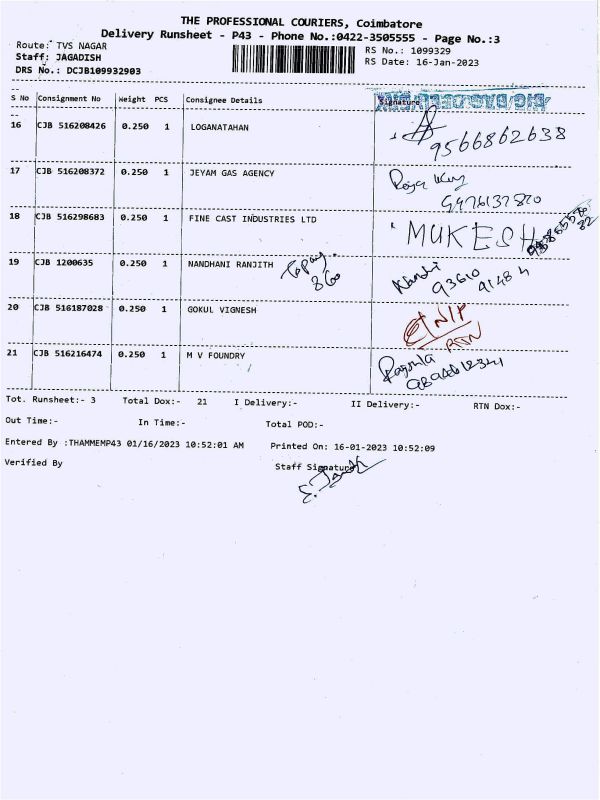 THE PROFESSIONAL COURIERS, Coimbatore
Delivery Runsheet - P43 - Phone No.:0422-3505555 - Page No.:3
Route: TVS NAGAR
RS No.: 1099329
Staff: JAGADISH
RS Date: 16-Jan-2023
DRS No.: DCJB109932903
S No Consignment No Weight PCS Consignee Details Signature
16 CJB 516208426 0.250 1 LOGANATAHAN 9566862638
17 CJB 516208372 0.250 1 JEYAM GAS AGENCY
18 CJB 516298683 0.250 1 FINE CAST INDUSTRIES LTD MUKESH
19 CJB 1200635 0.250 1 NANDHANI RANJITH
20 CJB 516187028 0.250 1 GOKUL VIGNESH N/P
RTN
21 CJB 516216474 0.250 1 M V FOUNDRY
Tot. Runsheet:- 3 Total Dox:- 21 I Delivery:- II Delivery:- RTN Dox:-
Out Time:- In Time:- Total POD:-
Entered By :THAMMEMP43 01/16/2023 10:52:01 AM Printed On: 16-01-2023 10:52:09
Verified By Staff Signature